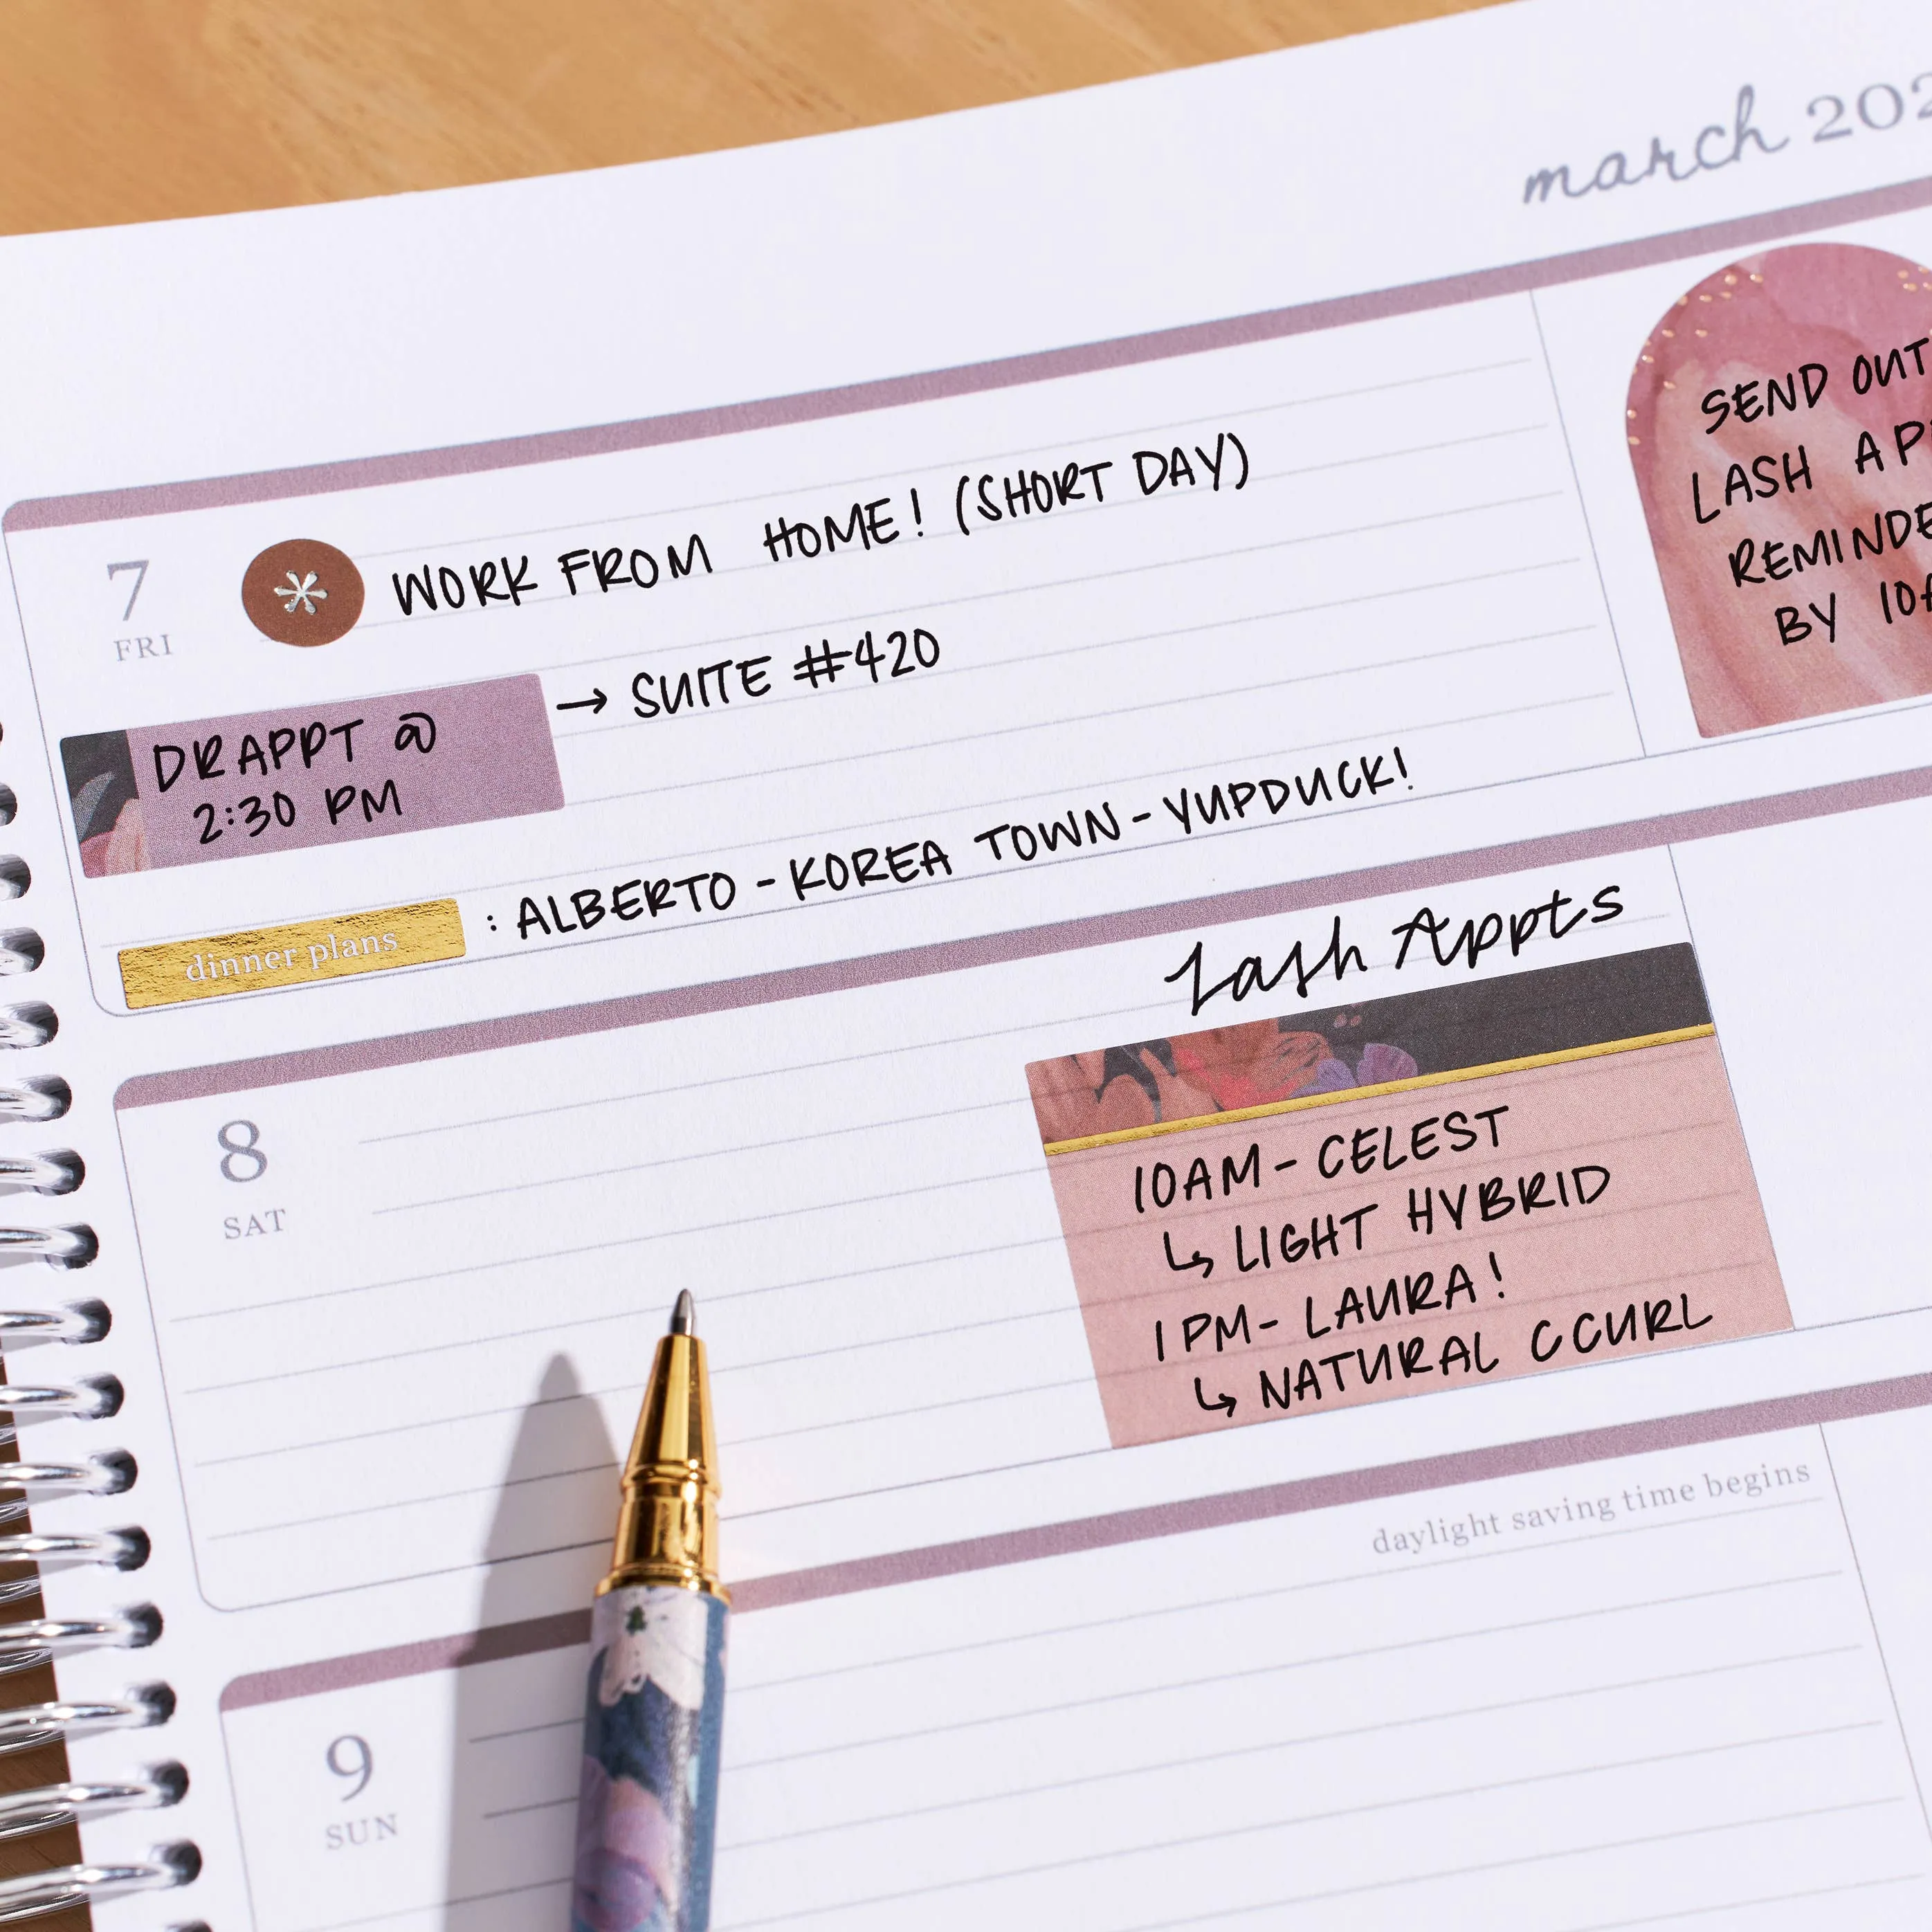 march 202
7
FRI
WORK FROM HOME! (SHORT DAY)
DR APPT @
2:30 PM
→ SUITE #420
dinner plans
: ALBERTO - KOREA TOWN - YUPDUCK!
SEND OUT
LASH
REMINDE
BY 10A
8
SAT
Lash Appts
10AM - CELEST
↳ LIGHT HYBRID
1 PM - LAURA!
↳ NATURAL C CURL
daylight saving time begins
9
SUN